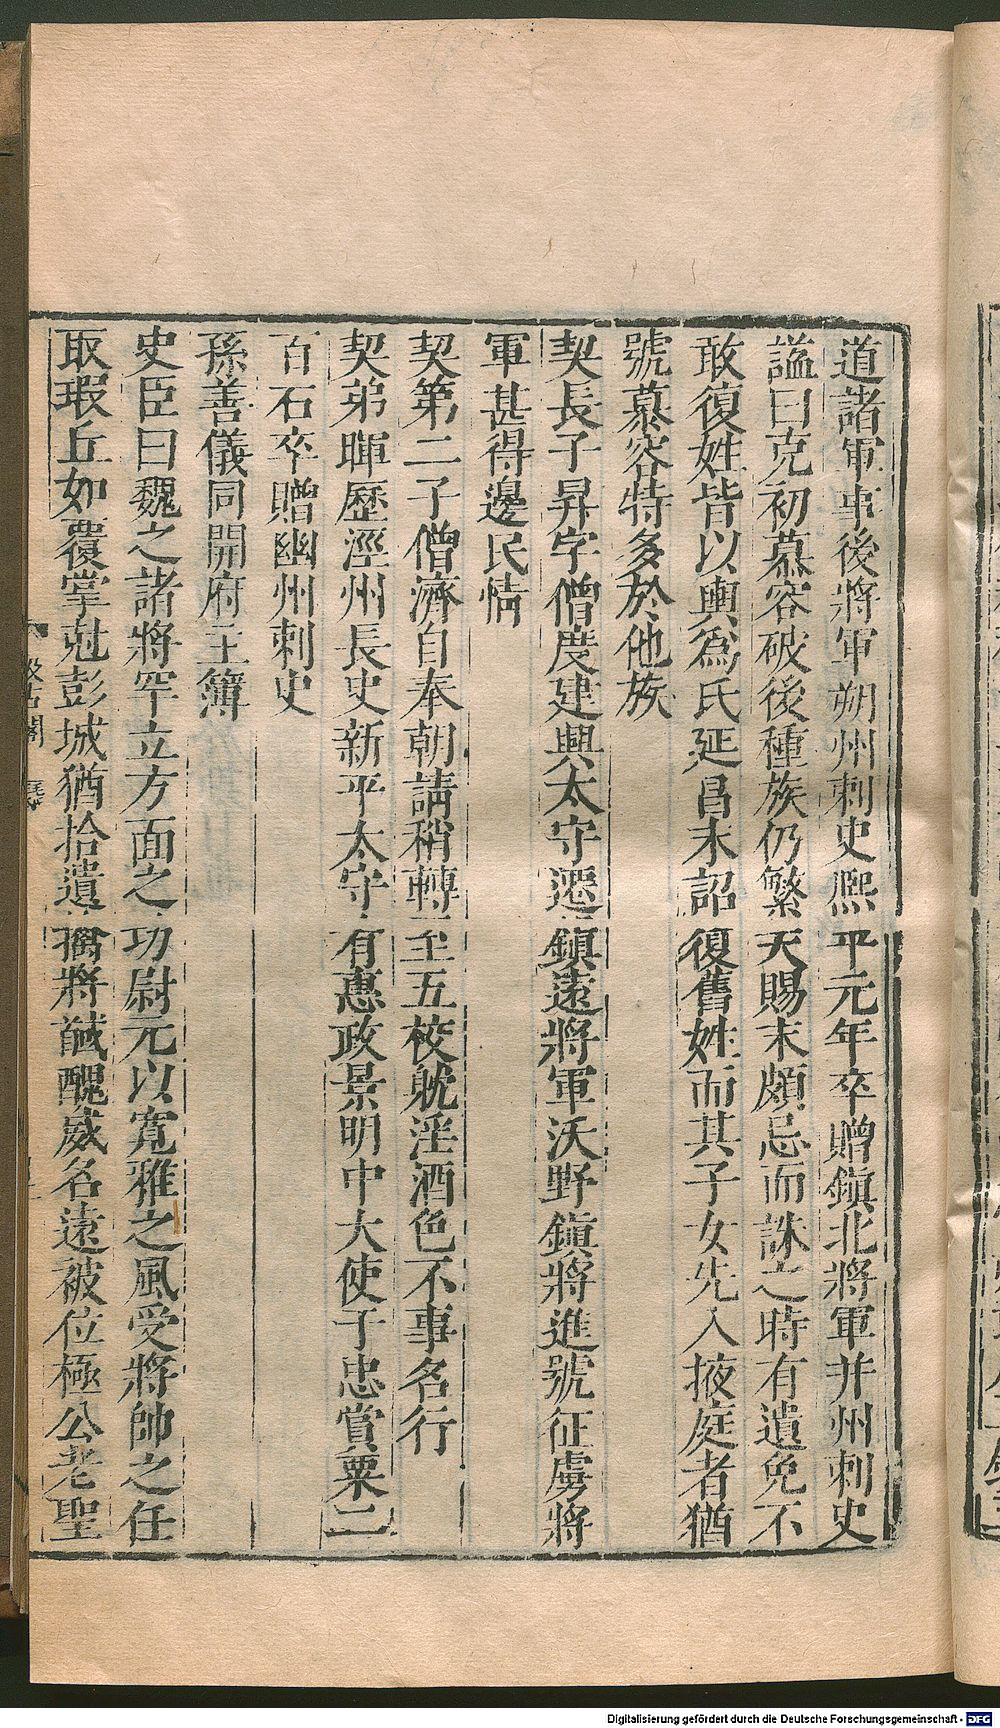 道諸軍事後將軍朔州刺史熙平元年卒贈鎮北將軍并州刺史
謚曰克初慕容破後種族仍繁天賜末頗忌而誅之時有遺免不
敢復姓皆以輿爲氏延昌末詔復舊姓而其子女先入掖庭者猶
號慕容特多於他族
契長子昇字僧度建興太守遷鎮遠將軍沃野鎮將進號征虜將
軍甚得邊民情
契第二子僧濟自奉朝請稍轉至五校躭淫酒色不事名行
契弟暉歷涇州長史新平太守有惠政景明中大使于忠賞粟二
百石卒贈幽州刺史
孫善儀同開府主簿
史臣曰魏之諸將罕立方面之功尉元以寬雅之風受將帥之任
取瑕丘如覆掌尅彭城猶拾遺擒將馘醜威名遠被位極公老聖
汲古閣
Digitalisierung gefördert durch die Deutsche Forschungsgemeinschaft - DFG